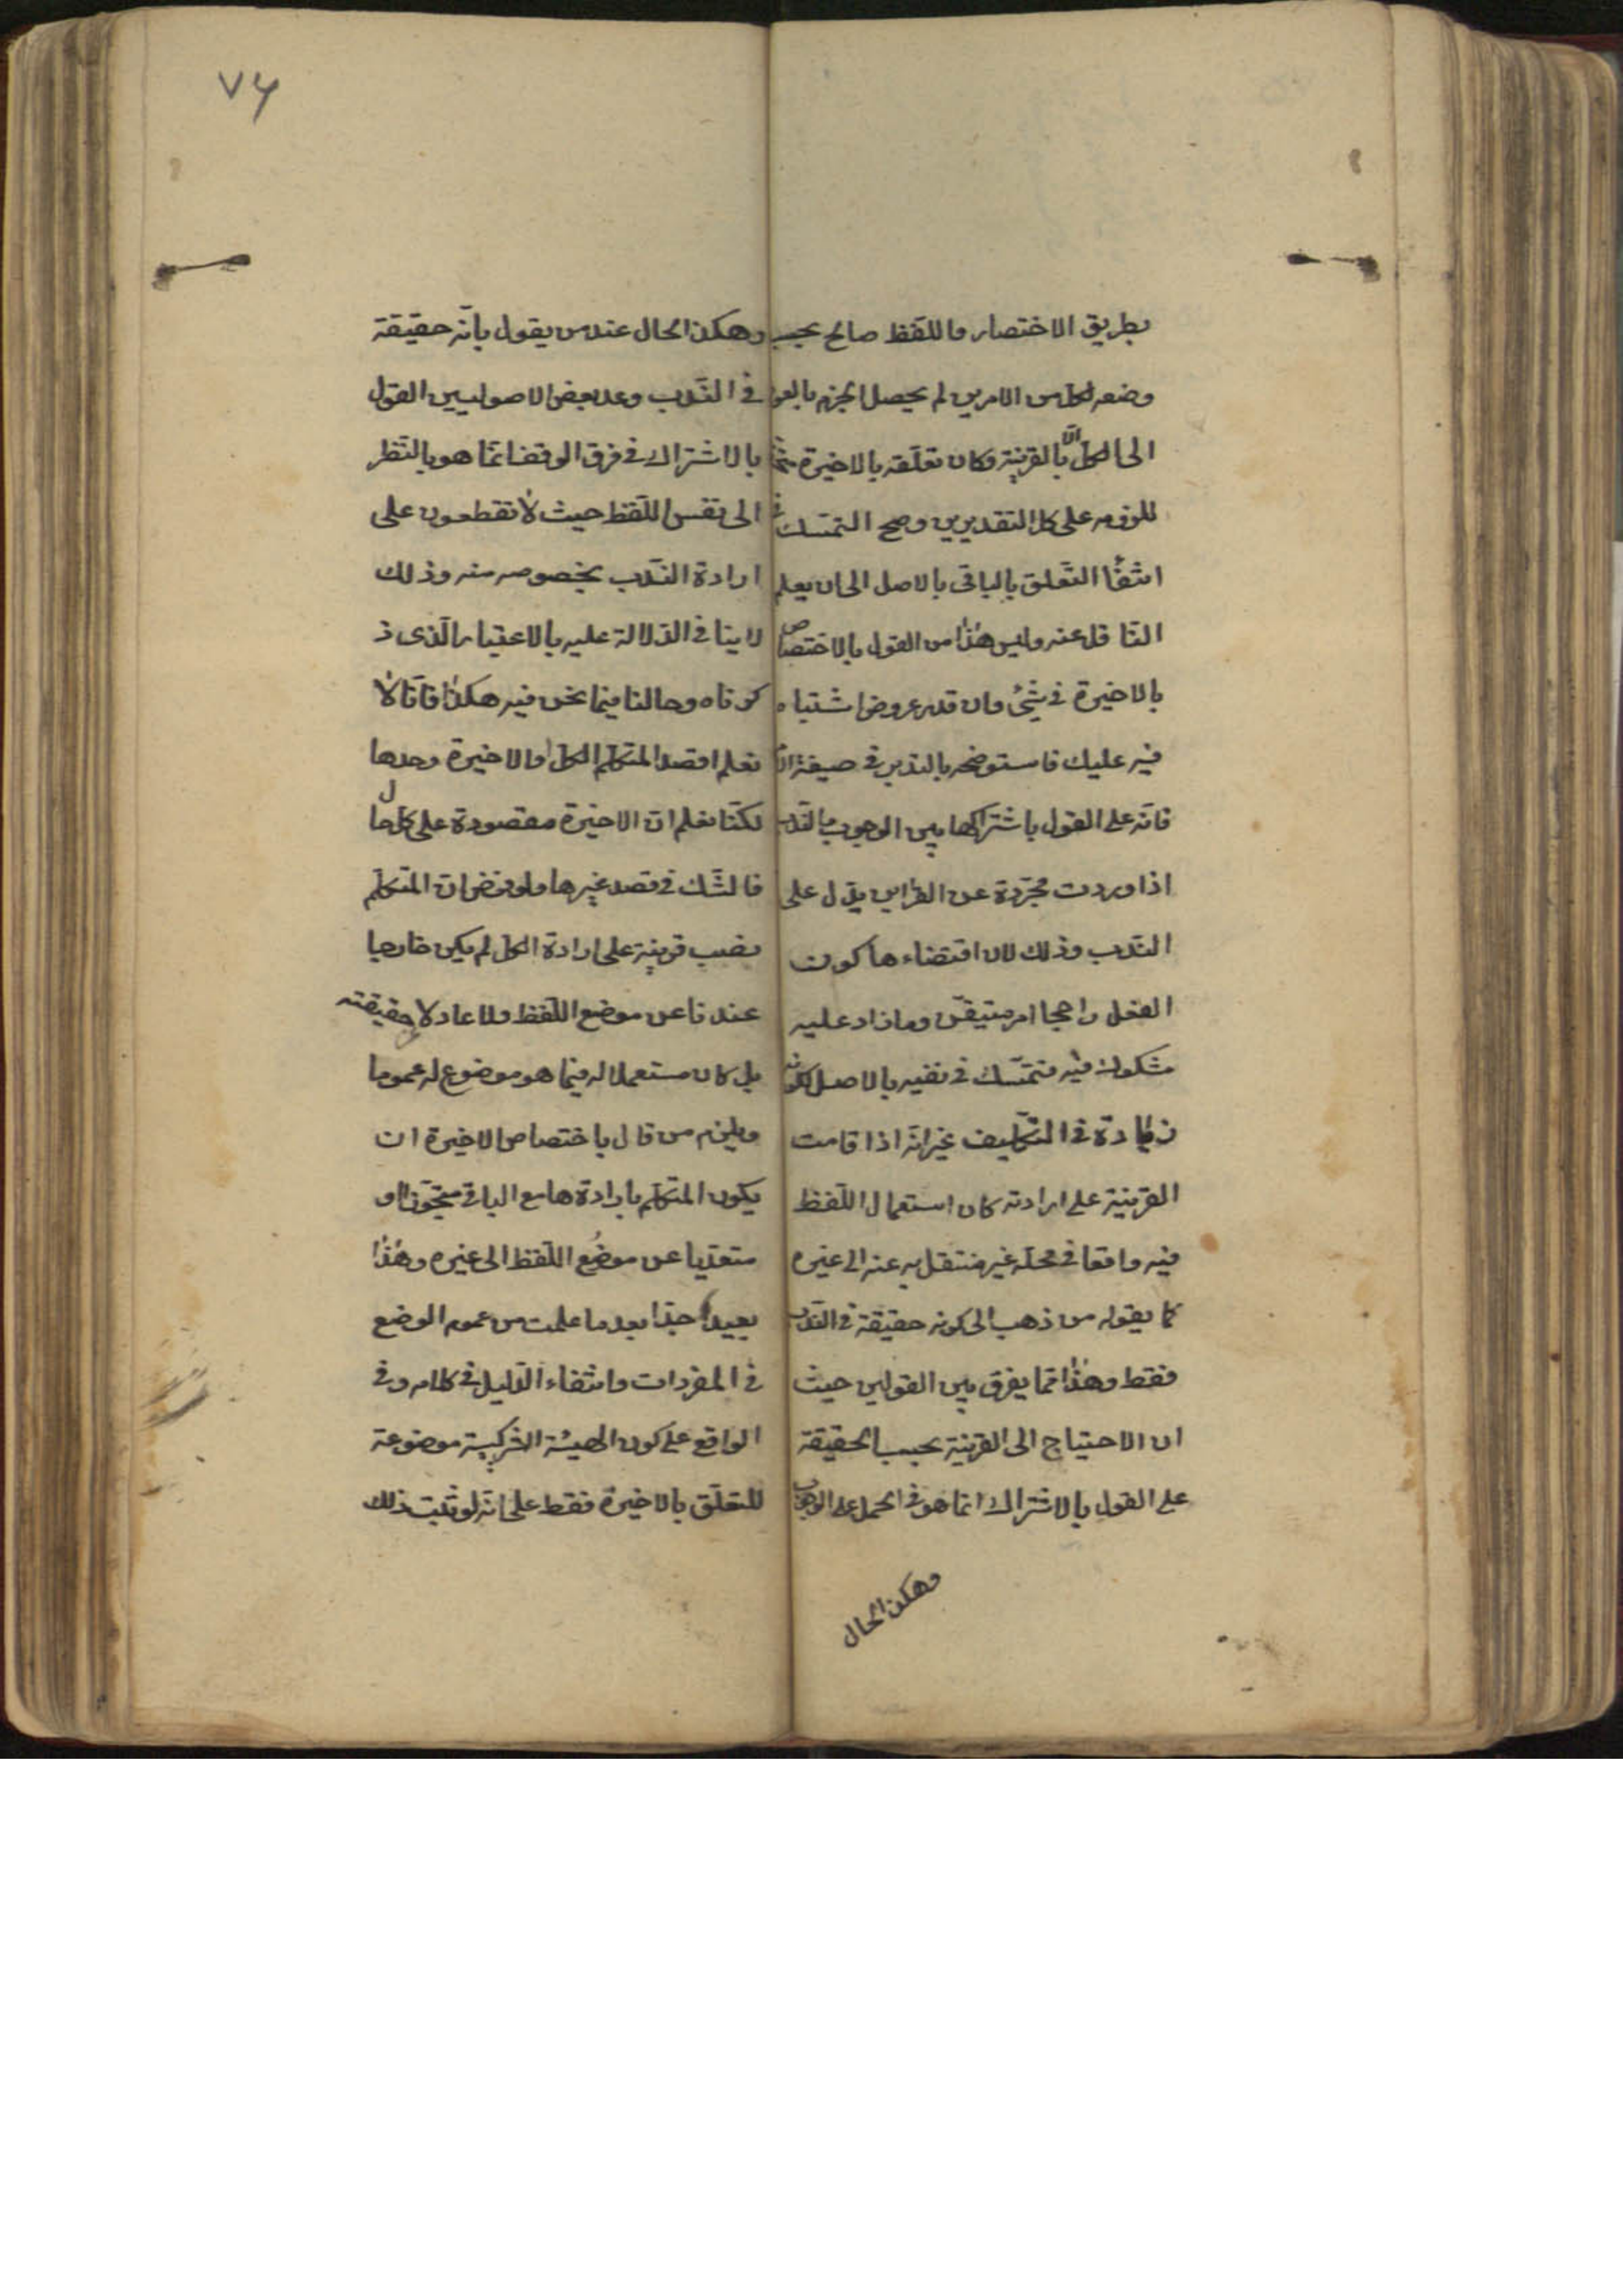 ۷۶
بطريق الاختصار واللفظ صالح بحسب
وضعه لكل من الامرين لم يحصل الجزم بالعود
الى الكل الّا بالقرينة وكان تعلّقه بالاخيرة متحققا
للزومه على كل التقديرين وصح التمسّك في
انتفاء التعلّق بالباقى بالاصل الى ان يعلم
النّاقل عنه وليس هذا من القول بالاختصاص
بالاخيرة في شئ وان قدر عروض اشتباه
فيه عليك فاستوضحه بالتدبر في صيغة الامر
فانّه على القول باشتراكها بين الوجوب والندب
اذا وردت مجرّدة عن القراين يدلّ على
الندب وذلك لان اقتضاءها كون
الفعل راجحا امر متيقّن وما زاد عليه
مشكوك فيه فنتمسّك في نفيه بالاصل لكونه
زيادة في التكليف غير انّه اذا قامت
القرينة على ارادته كان استعمال اللّفظ
فيه واقعا في محلّه غير منتقل به عنه الى غيره
كما يقوله من ذهب الى كونه حقيقة في الندب
فقط وهذا ممّا يفرق بين القولين حيث
ان الاحتياج الى القرينة بحسب الحقيقة
على القول بالاشتراك انما هو في الحمل على الوجوب
وهكذا الحال
وهكذا الحال عند من يقول بانّه حقيقة
في النّدب وعد بعض الاصوليين القول
بالاشتراك في فرق الوقف انّما هو بالنّظر
الى نفس اللّفظ حيث لا نقطعون على
ارادة النّدب بخصوصه منه وذلك
لا ينافى الدّلالة عليه بالاعتبار الّذى ذ
كرناه وحالنا فيما نحن فيه هكذا فانّا لا
نعلم اقصد المتكلّم الكل او الاخيرة وحدها
لكنّا نعلم انّ الاخيرة مقصودة على كل حال
فالشّك في قصد غيرها ولو فرض ان المتكلّم
نصب قرينة على ارادة الكل لم يكن خارجا
عندنا عن موضع اللّفظ ولا عادلا حقيقته
بل كان مستعملا له فيما هو موضوع له عموما
ويلزم من قال باختصاص الاخيرة ان
يكون المتكلّم بارادتها مع الباقى متجوّزا او
متعدّيا عن موضع اللّفظ الى غيره وهذا
بعيد جدّا بعد ما علمت من عموم الوضع
في المفردات وانتفاء الدّليل في كلامه وفى
الواقع على كون الهيئة التركيبية موضوعة
للتعلّق بالاخيرة فقط على انّه لو ثبت ذلك